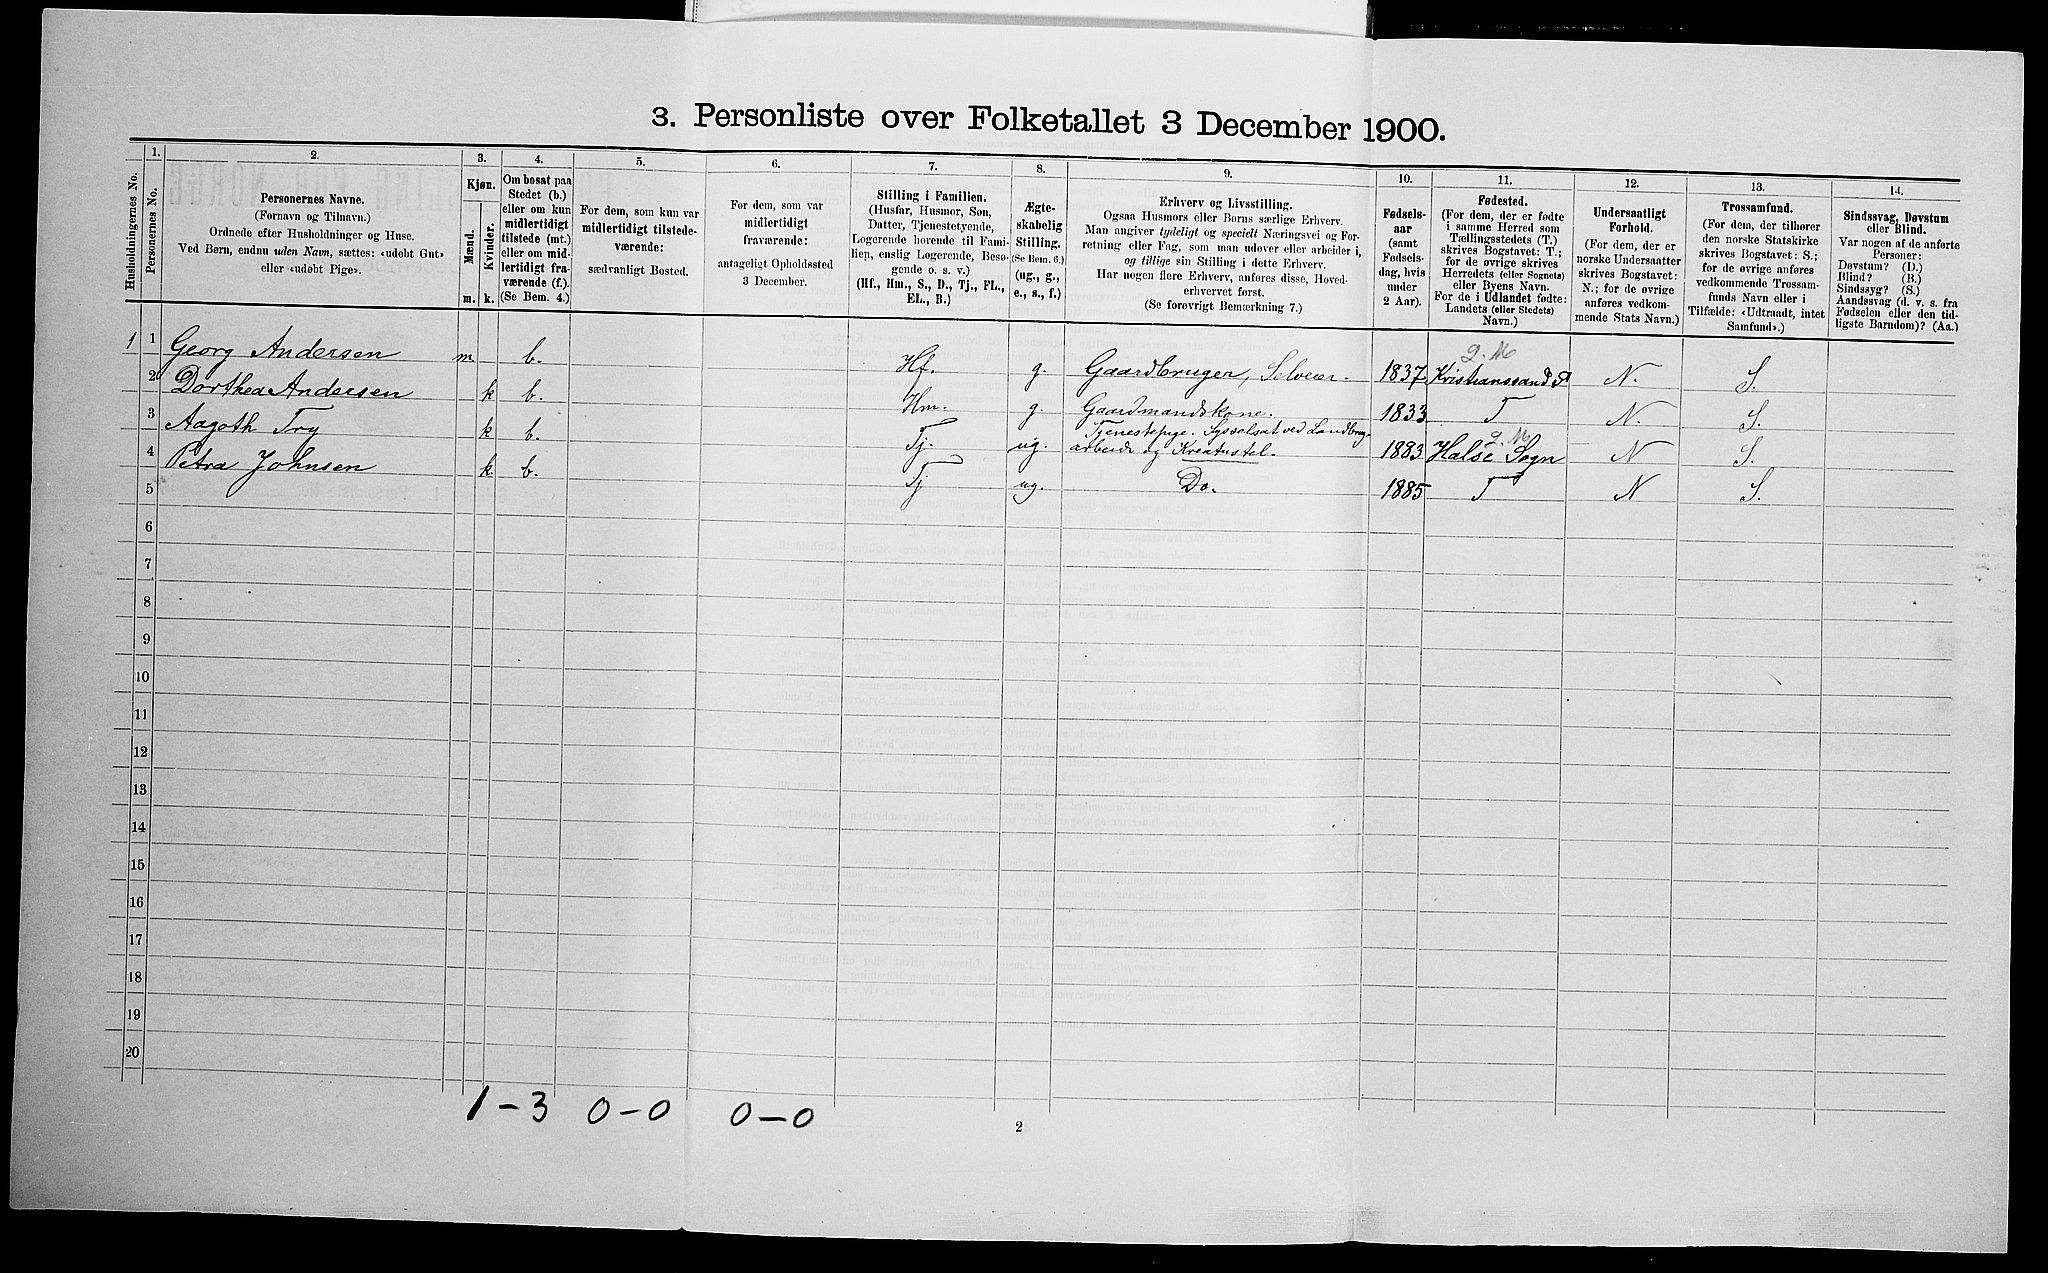 3. Personliste over Folketallet 3 December 1900.
Husholdningernes No.
1.
Personernes No.
2.
Personernes Navne.
(Fornavn og Tilnavn.)
Ordnede efter Husholdninger og Huse.
Ved Børn, endnu uden Navn, sættes: «udøbt Gut»
eller «udøbt Pige».
3.
Kjøn.
Mænd.
Kvinder.
m.
k.
4.
Om bosat paa
Stedet (b.)
eller om kun
midlertidigt
tilstede (mt.)
eller om mid-
lertidigt fra-
værende (f.).
(Se Bem. 4.)
5.
For dem, som kun var
midlertidigt tilstede-
værende:
sædvanligt Bosted.
6.
For dem, som var
midlertidigt
fraværende:
antageligt Opholdssted
3 December.
7.
Stilling i Familien.
(Husfar, Husmor, Søn,
Datter, Tjenestetyende,
Logerende hørende til Fami-
lien, enslig Logerende, Besø-
gende o. s. v.)
(Hf., Hm., S., D., Tj., FL.,
EL., B.)
8.
Ægte-
skabelig
Stilling.
(Se Bem. 6.)
(ug., g.,
e., s., f.)
9.
Erhverv og Livsstilling.
Ogsaa Husmors eller Børns særlige Erhverv.
Man angiver tydeligt og specielt Næringsvei og For-
retning eller Fag, som man udøver eller arbeider i,
og tillige sin Stilling i dette Erhverv.
Har nogen flere Erhverv, anføres disse, Hoved-
erhvervet først.
(Se forøvrigt Bemærkning 7.)
10.
Fødsels-
aar
(samt
Fødsels-
dag, hvis
under
2 Aar).
11.
Fødested.
(For dem, der er fødte
i samme Herred som
Tællingsstedets (T.)
skrives Bogstavet: T.;
for de øvrige skrives
Herredets (eller Sognets)
eller Byens Navn.
For de i Udlandet fødte:
Landets (eller Stedets)
Navn.)
12.
Undersaatligt
Forhold.
(For dem, der er
norske Undersaatter
skrives Bogstavet:
N.; for de øvrige
anføres vedkom-
mende Stats Navn.)
13.
Trossamfund.
(For dem, der tilhører
den norske Statskirke
skrives Bogstavet: S.;
for de øvrige anføres
vedkommende Trossam-
funds Navn eller i
Tilfælde: «Udtraadt, intet
Samfund».)
14.
Sindssvag, Døvstum
eller Blind.
Var nogen af de anførte
Personer:
Døvstum? (D.)
Blind? (B.)
Sindssyg? (S.)
Aandssvag (d. v. s. fra
Fødselen eller den tid-
ligste Barndom)? (Aa.)
1 1 Georg Andersen m. b. Hf. g. Gaardbruger, Selveier. 1837 Kristianssand N. S.
2 Dorthea Andersen k b. Hm. g. Gaardmandskone. 1833 T N. S.
3 Aagoth Try k b. Tj. ug. Tjenestepige. Sysselsat ved Landbrug-
arbeide og Kreaturstel. 1883 Halse Sogn N S.
4 Petra Johnsen k b. Tj ug. Do. 1885 T N S.
5
6
7
8
9
10
11
12
13
14
15
16
17
18
19
20
1 – 3 0 – 0 0 – 0
2